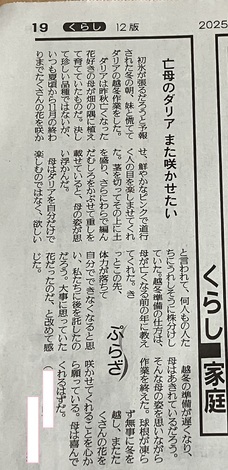 19
くらし
12版
2025
くらし■家庭
亡母のダリア また咲かせたい
初氷が張るだろうと予報
された冬の朝、妹と慌てて
ダリアの越冬作業をした。
ダリアは昨秋亡くなった
花好きの母が畑の隅に植え
て育てていたものだ。決し
て珍しい品種ではないが、
いつも夏頃から11月の終わ
りまでたくさんの花を咲か
せ、鮮やかなピンクで道行
く人の目を楽しませてくれ
た。茎を切ってその上に土
を盛り、さらにわらで編ん
だむしろをかぶせて重しを
載せていると、母の姿が思
い浮かんだ。
母はダリアを自分だけで
楽しむのではなく、欲しい
と言われて、何人もの人た
ちにうれしそうに株分けし
ていた。越冬準備の仕方は、
母が亡くなる前の年に教え
てくれた。き
っとこの先、
体力が落ちて
自分でできなくなると思
い、私たちに後を託したの
だろう。大事に思っていた
花だったのだ、と改めて感
じた。
ぷらざ
越冬の準備が遅くなり、
母はあきれているだろう。
そんな母の姿を思いながら
作業を終えた。球根が凍ら
ず無事に冬を
越し、またた
くさんの花を
咲かせてくれることを心か
ら願っている。母は喜んで
くれるはずだ。